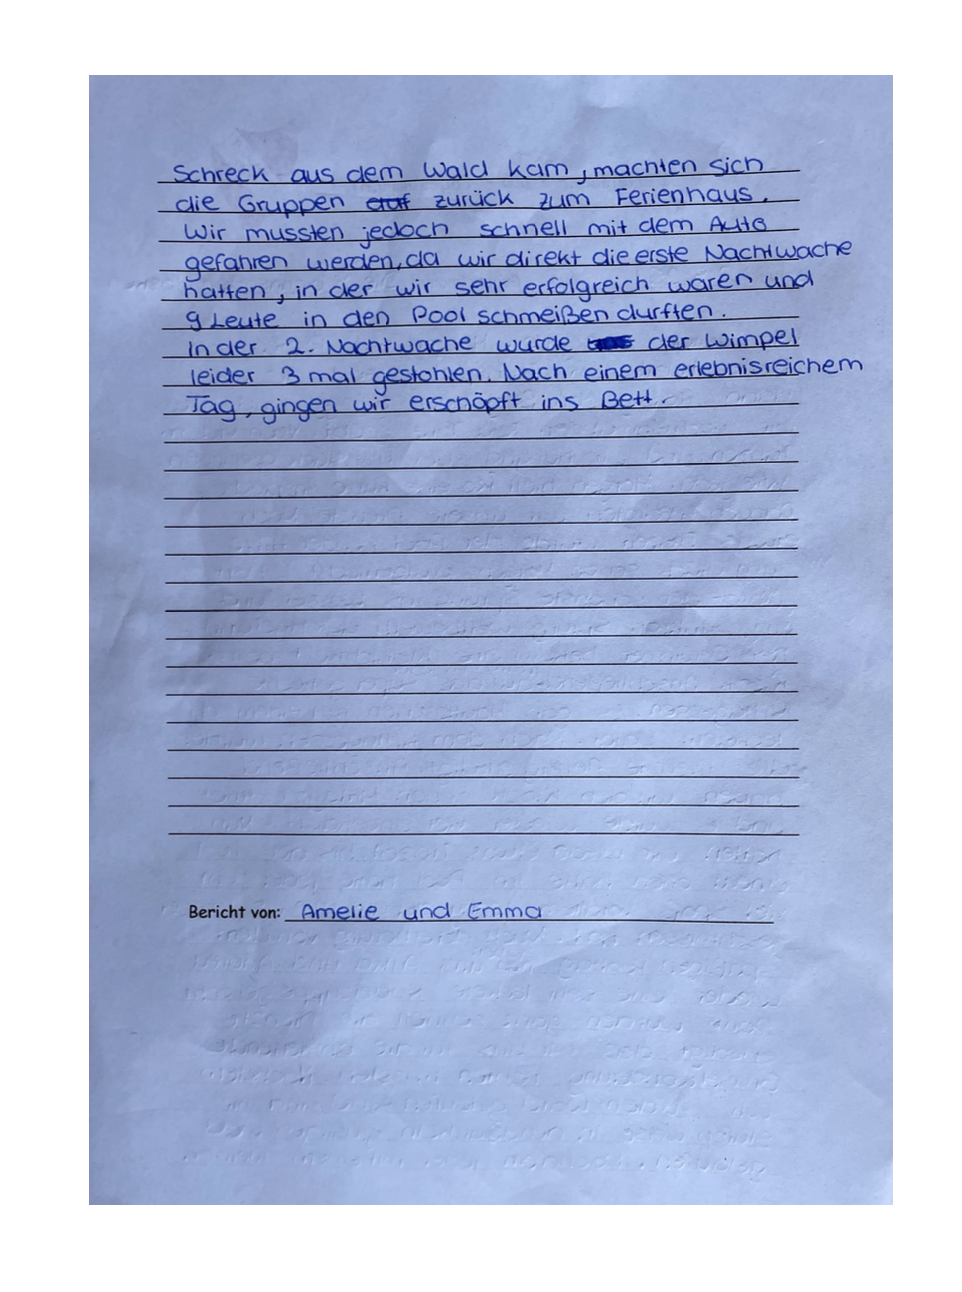 Schreck aus dem Wald kam, machten sich
die Gruppen zurück zum Ferienhaus.
Wir mussten jedoch schnell mit dem Auto
gefahren werden, da wir direkt die erste Nachtwache
hatten, in der wir sehr erfolgreich waren und
9 Leute in den Pool schmeißen durften.
In der 2. Nachtwache wurde der Wimpel
leider 3 mal gestohlen. Nach einem erlebnisreichem
Tag, gingen wir erschöpft ins Bett.
Bericht von: Amelie und Emma